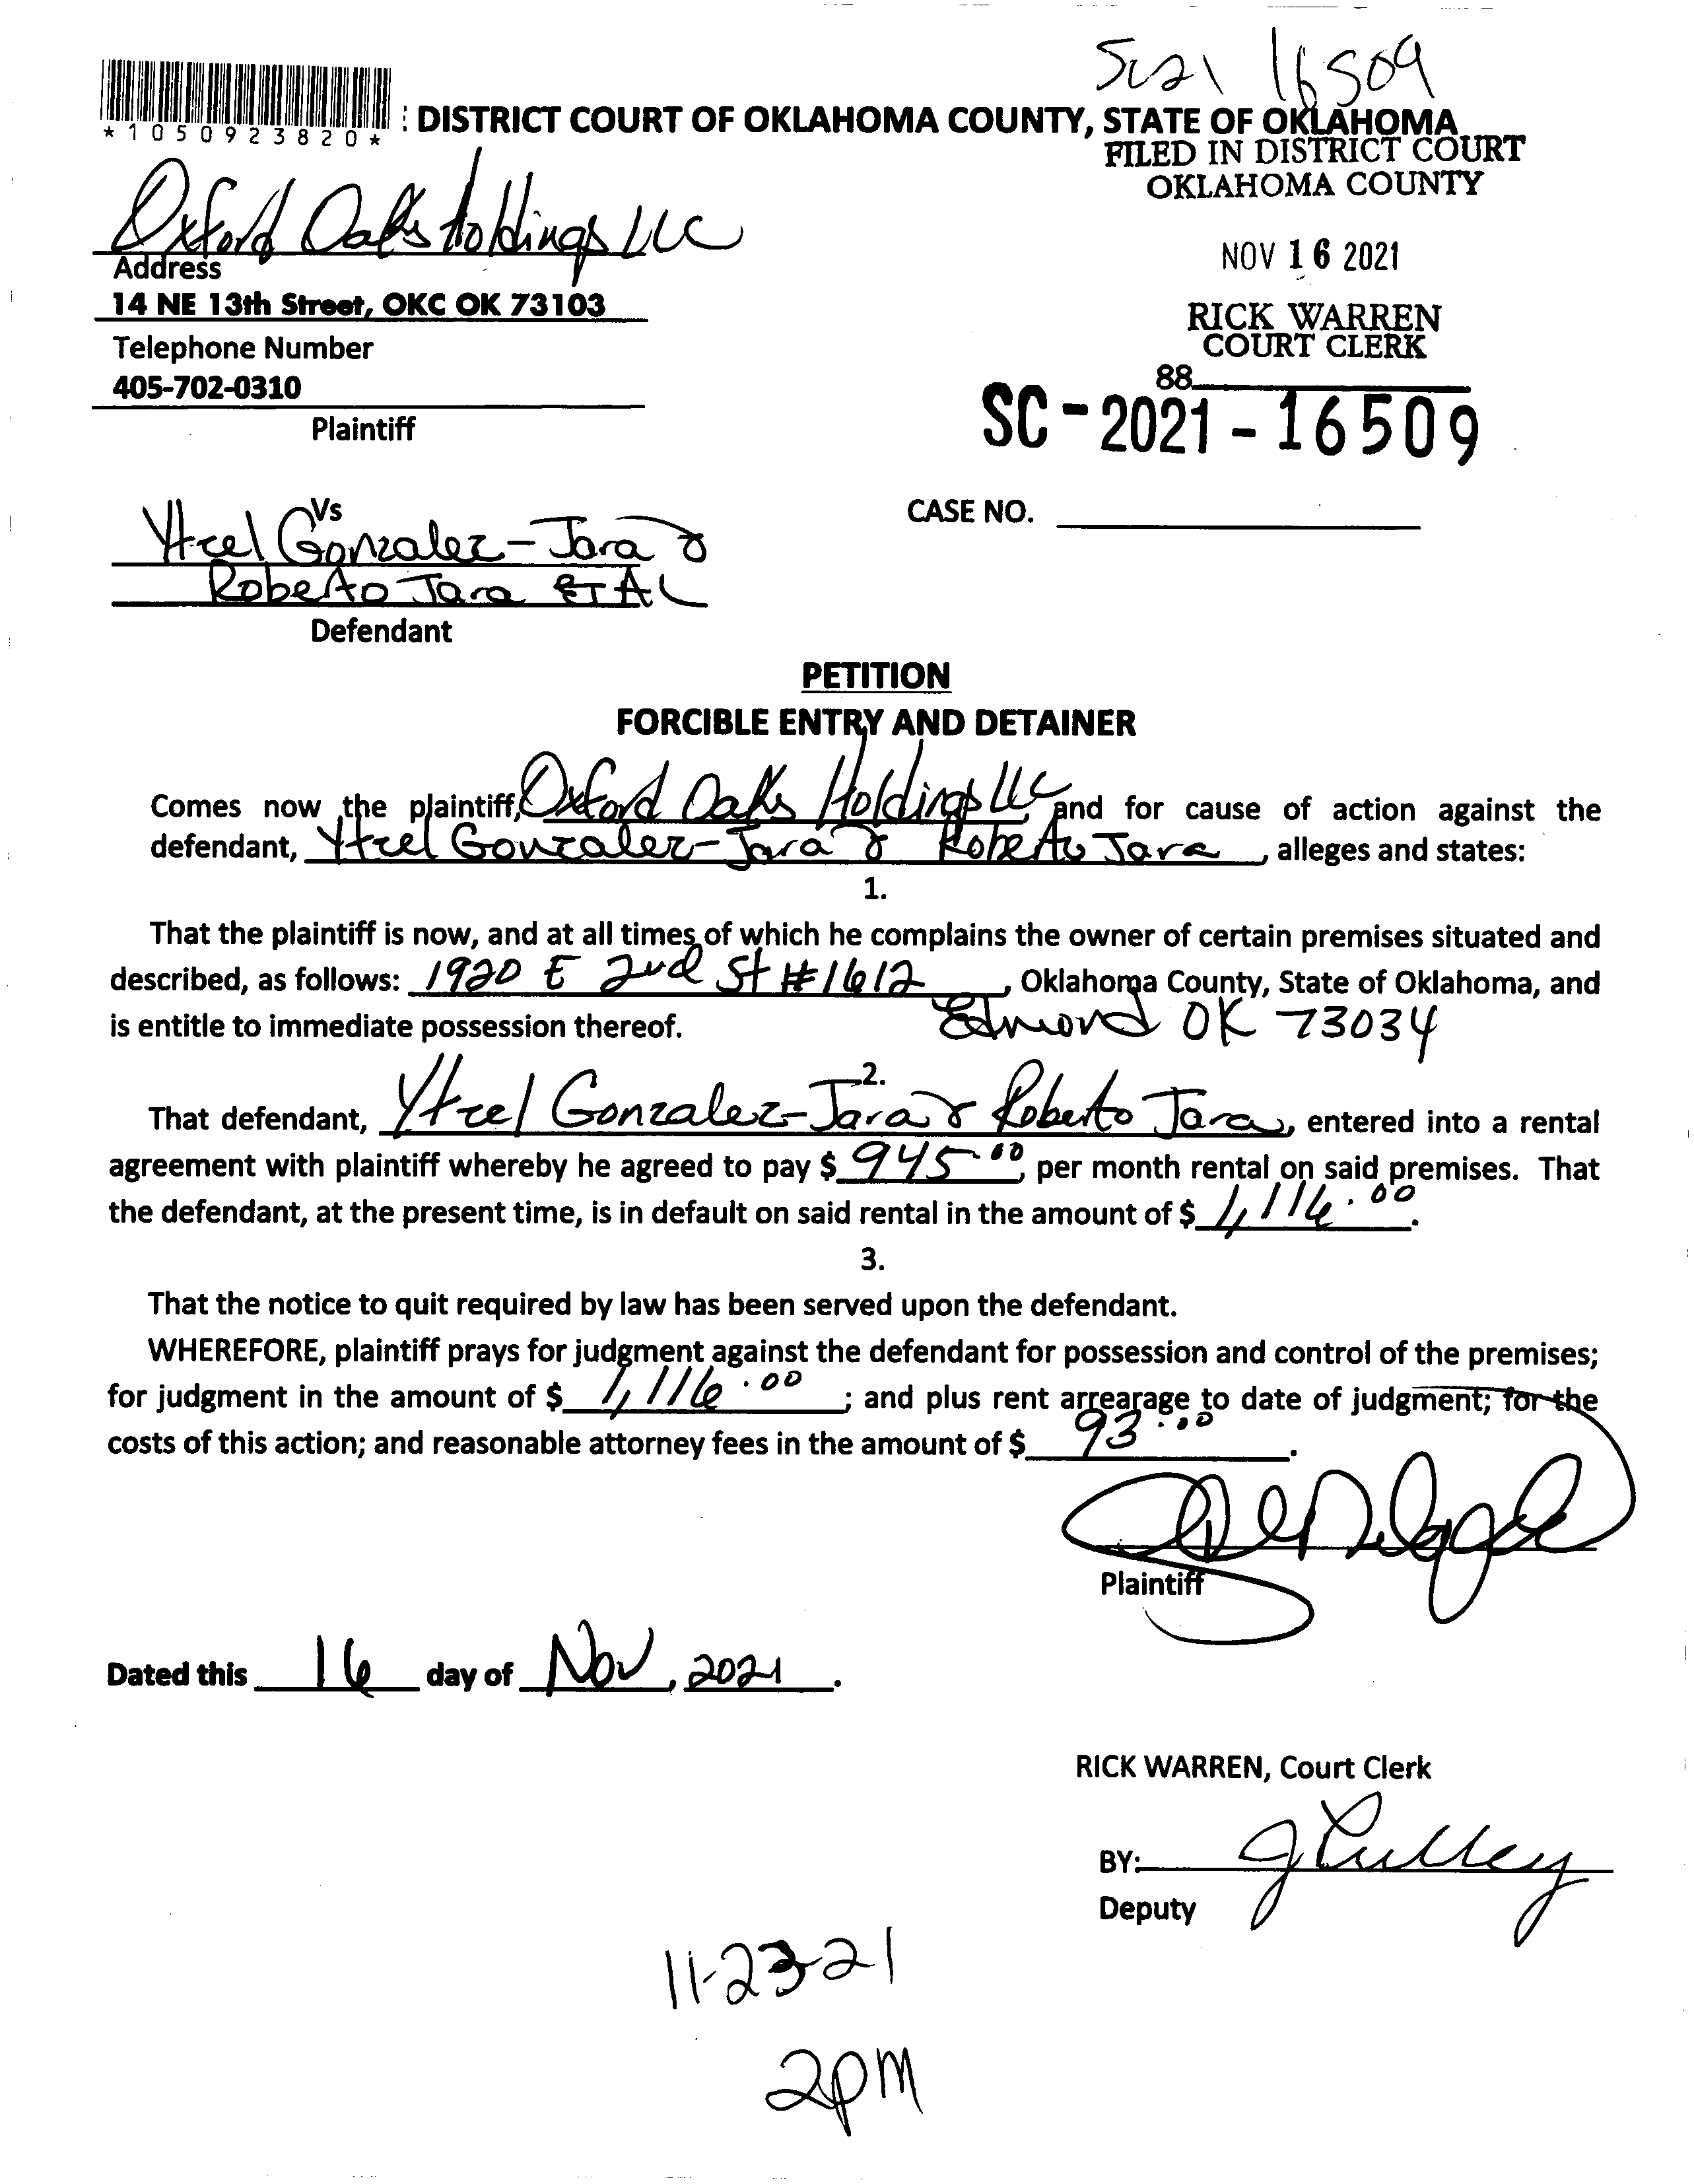 SC21 16509
*1050923820*
: DISTRICT COURT OF OKLAHOMA COUNTY, STATE OF OKLAHOMA
FILED IN DISTRICT COURT
OKLAHOMA COUNTY
Oxford Oaks Holdings LLC
Address
14 NE 13th Street, OKC OK 73103
Telephone Number
405-702-0310
Plaintiff
NOV 16 2021
RICK WARREN
COURT CLERK
88
SC-2021-16509
Vs
CASE NO.
Ytzel Gonzalez-Jara &
Roberto Jara ET AL
Defendant
PETITION
FORCIBLE ENTRY AND DETAINER
Comes now the plaintiff, Oxford Oaks Holdings LLC, and for cause of action against the
defendant, Ytzel Gonzalez-Jara & Roberto Jara, alleges and states:
1.
That the plaintiff is now, and at all times of which he complains the owner of certain premises situated and
described, as follows: 1920 E 2nd St #1612, Oklahoma County, State of Oklahoma, and
is entitle to immediate possession thereof. Edmond OK 73034
2.
That defendant, Ytzel Gonzalez-Jara & Roberto Jara, entered into a rental
agreement with plaintiff whereby he agreed to pay $ 945.00, per month rental on said premises. That
the defendant, at the present time, is in default on said rental in the amount of $ 1,116.00.
3.
That the notice to quit required by law has been served upon the defendant.
WHEREFORE, plaintiff prays for judgment against the defendant for possession and control of the premises;
for judgment in the amount of $ 1,116.00; and plus rent arrearage to date of judgment; for the
costs of this action; and reasonable attorney fees in the amount of $ 93.00.
Plaintiff
Dated this 16 day of Nov, 2021.
RICK WARREN, Court Clerk
BY:
Deputy
11-23-21
2pm